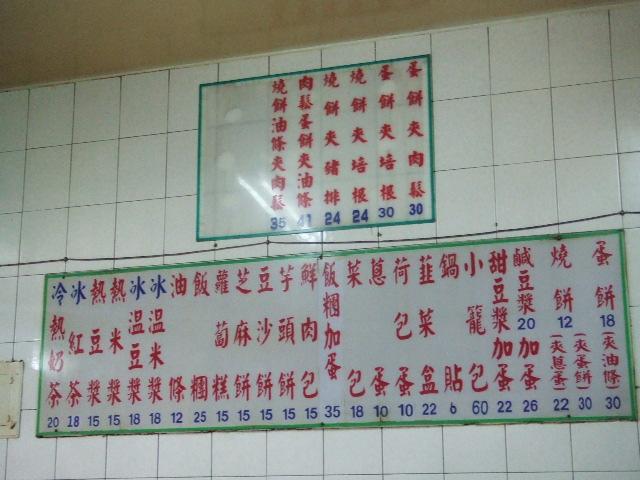 蛋餅夾肉鬆 30
蛋餅夾培根 30
燒餅夾培根 24
燒餅夾豬排 24
肉鬆蛋餅夾油條 41
燒餅油條夾肉鬆 35
蛋餅 18 (夾油條) 30
(夾蛋餅) 30
燒餅 12 (夾蔥蛋) 22
鹹豆漿 20 加蛋 26
甜豆漿加蛋 22
小籠包 60
鍋貼 6
韭菜盒 22
荷包蛋 10
蔥蛋 10
菜包 18
飯糰加蛋 35
鮮肉包 15
芋頭餅 15
豆沙餅 15
芝麻餅 15
蘿蔔糕 15
飯糰 25
油條 12
冰溫米漿 18
冰溫豆漿 18
熱米漿 15
熱豆漿 15
冰紅茶 18
冷熱奶茶 20